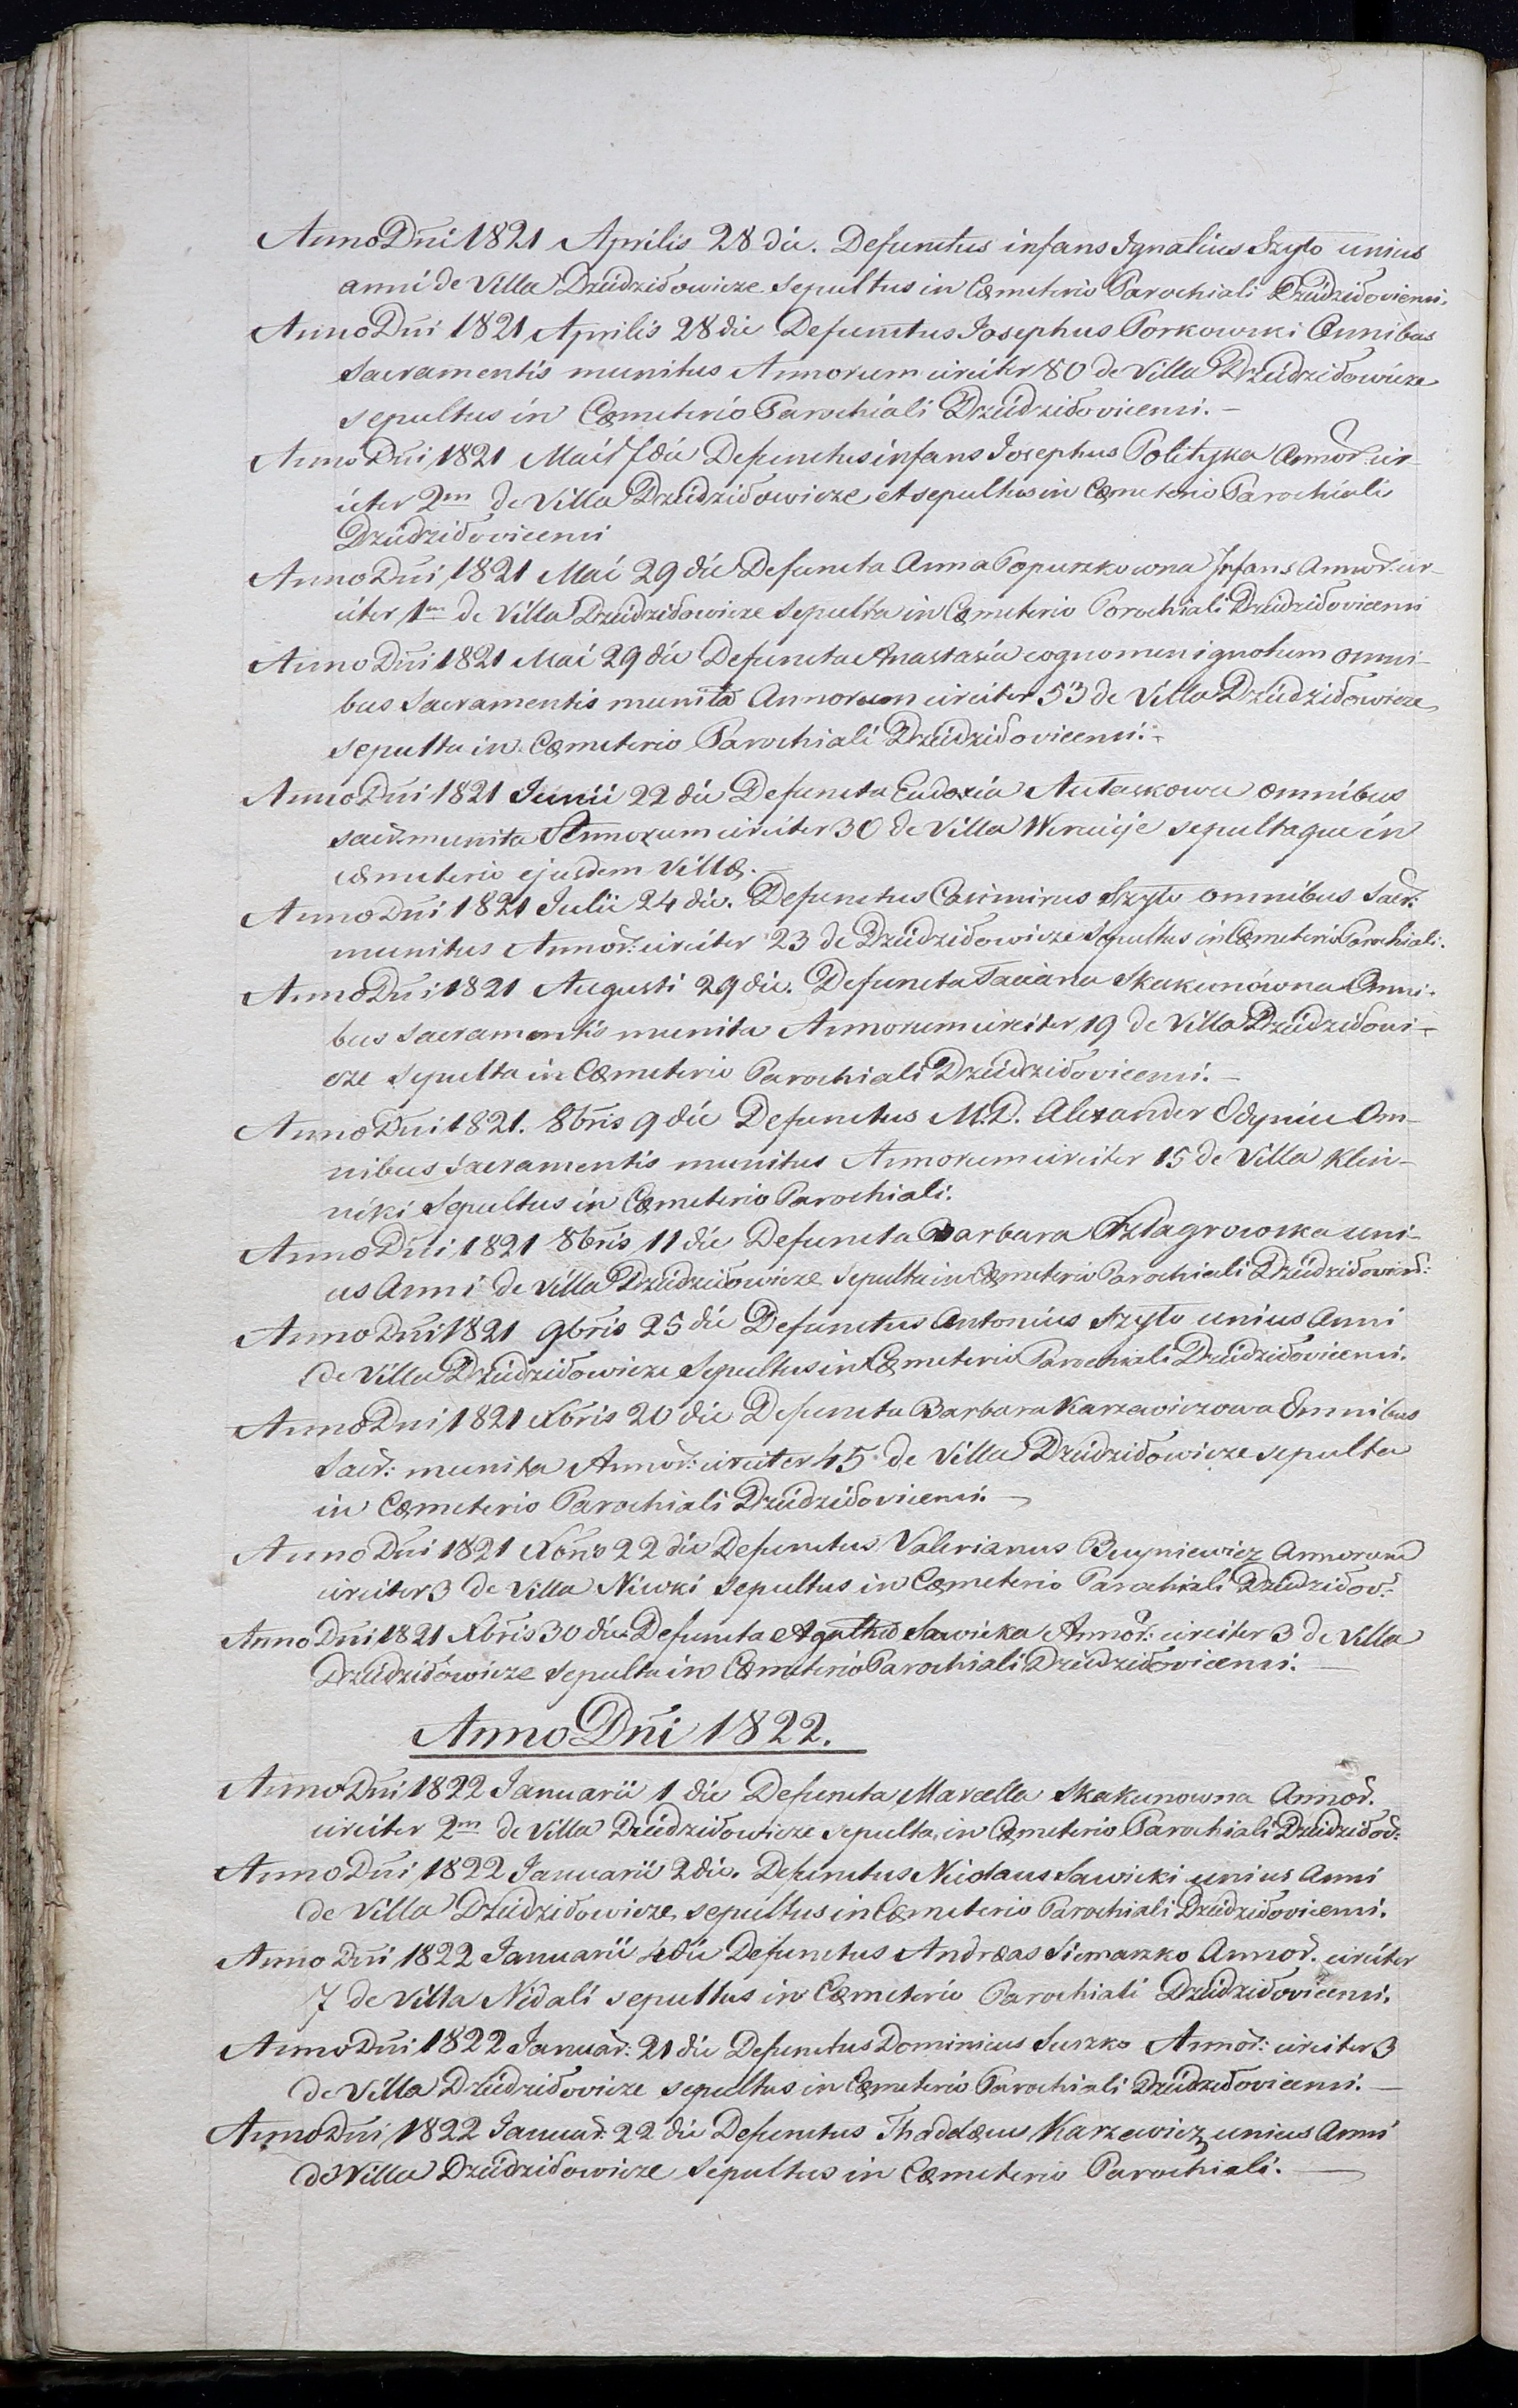 Anno Dni 1821 Aprilis 28 die. Defunctus infans Ignatius Szyło unius
anni de Villa Dziudziłowicze Sepultus in Cœmeterio Parochiali Dziudziłovicensi.
Anno Dni 1821 Aprilis 28 die Defunctus Josephus Porkowski Omnibus
Sacramentis munitus Annorum circiter 80 de Villa Dziudziłowicze
sepultus in Cœmeterio Parochiali Dziudziłovicensi. –
Anno Dni 1821 Maii 7 die Defunctus infans Josephus Polityka Annor: cir-
citer 2m de Villa Dziudziłowicze et sepultus in Cœmeterio Parochiali
Dziudziłovicensi
Anno Dni 1821 Mai 29 die Defuncta Anna Popuszkowna Infans Annor: cir-
citer 1m de Villa Dziudziłowicze Sepulta in Cœmeterio Parochiali Dziudziłovicensi
Anno Dni 1821 Mai 29 die Defuncta Anastasia cognomen ignotum omni-
bus Sacramentis munita Annorum circiter 53 de Villa Dziudziłowicze
sepulta in Cœmeterio Parochiali Dziudziłovicensi. –
Anno Dni 1821 Junii 22 die Defuncta Eudoxia Autaskowa omnibus
sacr: munita Annorum circiter 30 de Villa sepultaque in
cœmeterio ejusdem Villæ.
Anno Dni 1821 Julii 24 die. Defunctus Casimirus Szyło omnibus Sacr:
munitus Annor: circiter 23 de Dziudziłowicze Sepultus in Cœmeterio Parochiali.
Anno Dni 1821 Augusti 29 die. Defuncta Taciana Skakunówna Omni-
bus Sacramentis munita Annorum circiter 19 de Villa Dziudziłowi-
cze Sepulta in Cœmeterio Parochiali Dziudziłovicensi. –
Anno Dni 1821. 8bris 9 die Defunctus M.D. Alexander Odyniec Om-
nibus Sacramentis munitus Annorum circiter 15 de Villa Klin-
niki Sepultus in Cœmeterio Parochiali.
Anno Dni 1821 8bris 11 die Defuncta Barbara Sztagrowska uni-
us Anni de Villa Dziudziłowicze Sepulta in Cœmeterio Parochiali Dziudziłovicen:
Anno Dni 1821 9bris 25 die Defunctus Antonius Szyło unius Anni
de Villa Dziudziłowicze Sepultus in Cœmeterio Parochiali Dziudziłovicensi.
Anno Dni 1821 Xbris 20 die Defuncta Barbara Karzewiczowa Omnibus
Sacr: munita Annor: circiter 45 de Villa Dziudziłowicze sepulta
in Cœmeterio Parochiali Dziudziłovicensi. –
Anno Dni 1821 Xbris 22 die Defunctus Valerianus Buyniewicz Annorum
circiter 3 de Villa Niwki sepultus in Cœmeterio Parochiali Dziudziłov:
Anno Dni 1821 Xbris 30 die Defuncta Agatha Sawicka Annor: circiter 3 de Villa
Dziudziłowicze Sepulta in Cœmeterio Parochiali Dziudziłovicensi. –
Anno Dni 1822.
Anno Dni 1822 Januarii 1 die Defuncta Marcella Skakunowna Annor.
circiter 2m de Villa Dziudziłowicze sepulta in Cœmeterio Parochiali Dziudziłov:
Anno Dni 1822 Januarii 2 die. Defunctus Nicolaus Sawicki unius Anni
de Villa Dziudziłowicze sepultus in Cœmeterio Parochiali Dziudziłovicensi.
Anno Dni 1822 Januarii 4 die Defunctus Andræas Siemaszko Annor. circiter
7 de Villa Nidali sepultus in Cœmeterio Parochiali Dziudziłovicensi.
Anno Dni 1822 Januar: 21 die Defunctus Dominicus Suszko Annor: circiter 3
de Villa Dziudziłovicze sepultus in Cœmeterio Parochiali Dziudziłovicensi. –
Anno Dni 1822 Januar: 22 die Defunctus Thaddæus Karzewicz unius Anni
de Villa Dziudziłowicze Sepultus in Cœmeterio Parochiali. –